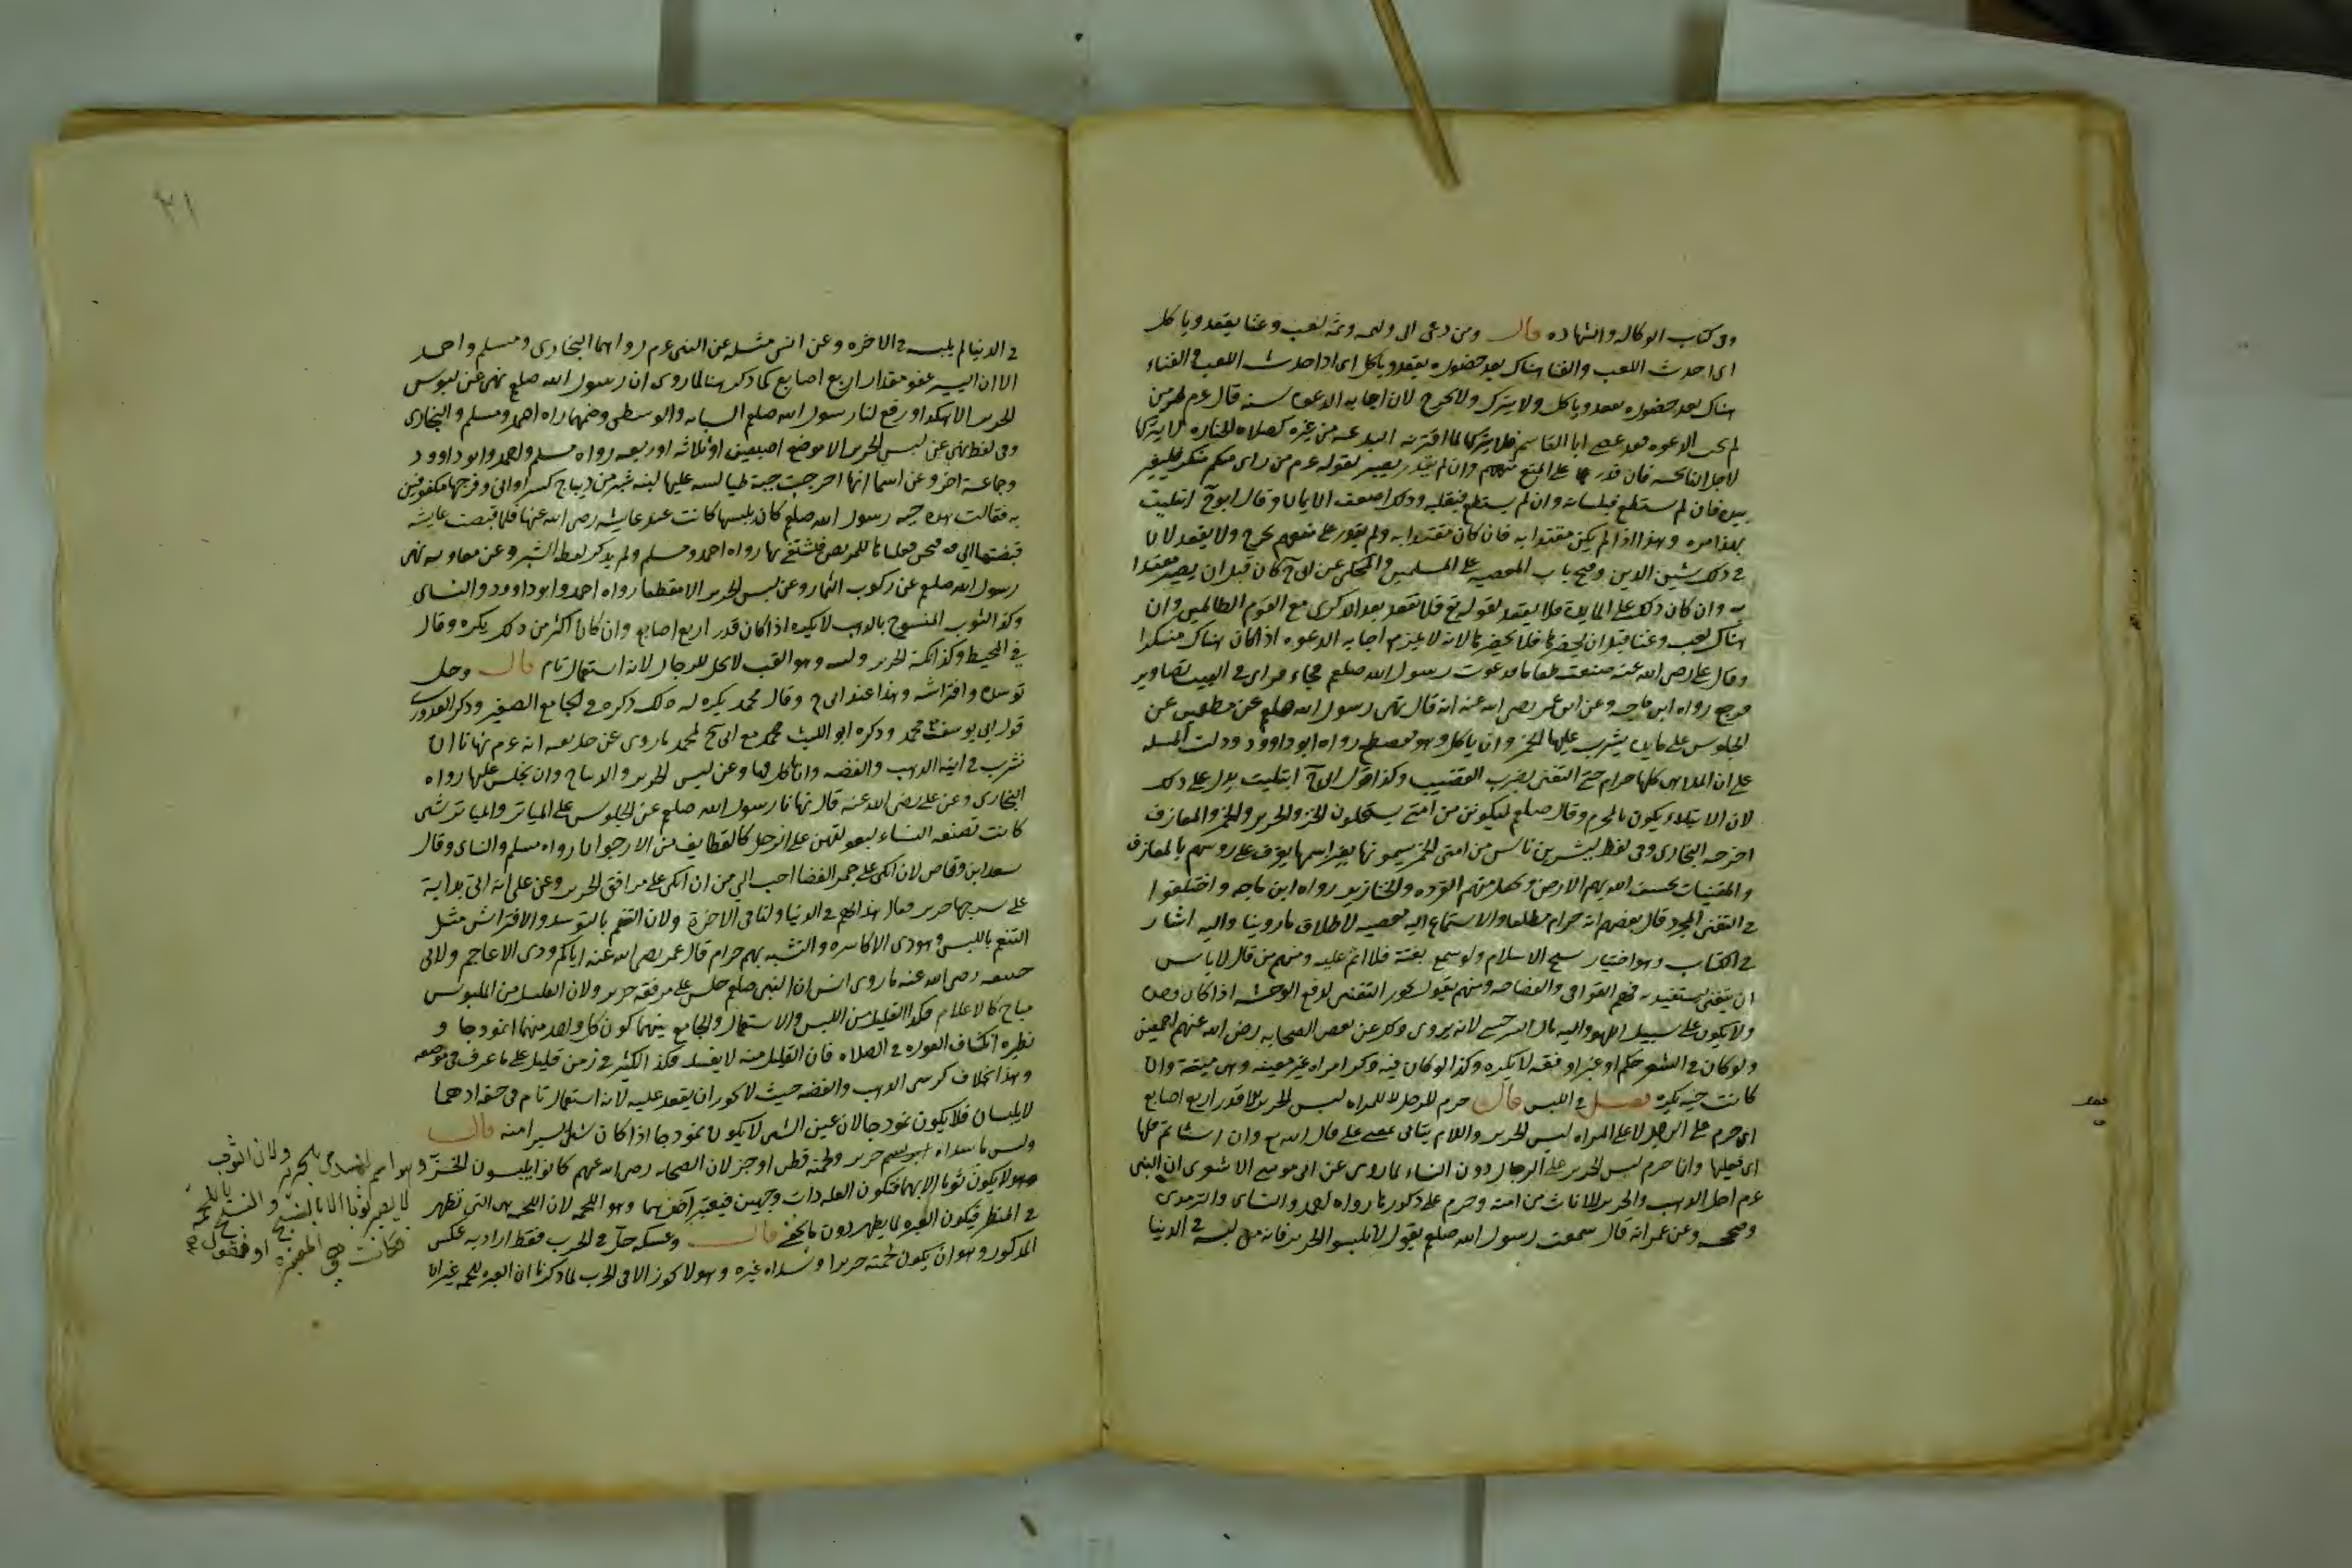 وفى كتاب الوكاله والشهاده قال ومن دعى الى وليمه وثمه لعب وغنا يقعد وياكل
اى احدث اللعب والغنا هناك بعد حضوره يقعد وياكل اى اذا احدث اللعب والغناء
هناك بعد حضوره يقعد وياكل ولا يترك ولا يخرج لان اجابه الدعوه سنه قال عم من
لم يجب الدعوه فقد عصى ابا القاسم فلا يتركها لما اقترنه البدعه من غيره كصلاه الجنازه لا يتركها
لاجل النائحه فان قدر على المنع منعهم وان لم يقدر يصبر لقوله عم من راى منكم منكرا فليغير
بيده فان لم يستطع فبلسانه وان لم يستطع فبقلبه وذلك اضعف الايمان وقال ابو ح ابتليت
بهذا مره وهذا اذا لم يكن مقتدا به فان كان مقتدا به ولم يقدر على منعهم يخرج ولا يقعد لان
فى ذلك شين الدين وفتح باب المعصيه على المسلمين والمحكى عن ابى ح كان قبل ان يصير مقتدا
به وان كان ذلك على المايده فلا يقعد لقوله تع فلا تقعد بعد الذكرى مع القوم الظالمين وان
هناك لعب وغنا قبل ان يحضرها فلا يحضرها لانه لا يلزمه اجابه الدعوه اذا كان هناك منكرا
وقال على رضى الله عنه صنعت طعاما فدعوت رسول الله صلعم فجاء فراى فى البيت تصاوير
فرجع رواه ابن ماجه وعن ابن عمر رضى الله عنه انه قال نهى رسول الله صلعم عن مطعمين عن
الجلوس على مايده يشرب عليها الخمر وان ياكل وهو منبطح رواه ابو داوود ودلت المسله
على ان الملاهى كلها حرام حتى التغنى بضرب القضيب وكذا قول ابى ح ابتليت يدل على ذلك
لان الابتلاء يكون بالمحرم وقال صلعم ليكونن من امتى يستحلون الخز والحرير والخمر والمعازف
اخرجه البخارى وفى لفظ ليشربن ناس من امتى الخمر يسمونها بغير اسمها يعزف على روسهم بالمعازف
والمغنيات يخسف الله بهم الارض ويجعل منهم القرده والخنازير رواه ابن ماجه واختلفوا
فى التغنى المجرد قال بعضهم انه حرام مطلقا والاستماع اليه معصيه لاطلاق ما روينا واليه اشار
فى الكتاب وهو اختيار شيخ الاسلام ولو سمع بغتة فلا اثم عليه ومنهم من قال لا باس
ان يتغنى ليستفيد به فهم القوافى والفصاحه ومنهم يقول يجوز التغنى لدفع الوحشه اذا كان وحده
ولا يكون على سبيل اللهو واليه مال السرخسى لانه يروى ذلك عن بعض الصحابه رضى الله عنهم اجمعين
ولو كان فى الشعر حكم او عبر او فقه لا يكره وكذا لو كان فيه ذكر امراه غير معينه وهى ميتة وان
كانت حيه يكره فصل فى اللبس قال حرم للرجل لا للمراه لبس الحرير الا قدر اربع اصابع
اى حرم على الرجل لا على المراه لبس الحرير واللام ياتى بمعنى على قال الله تع وان اساتم فلها
اى فعليها وانما حرم لبس الحرير على الرجال دون النساء لما روى عن ابى موسى الاشعرى ان النبى
عم احل الذهب والحرير للاناث من امته وحرم على ذكورها رواه احمد والنساى والترمذى
وصححه وعن عمر انه قال سمعت رسول الله صلعم يقول لا تلبسوا الحرير فانه من لبسه فى الدنيا
٢١
فى الدنيا لم يلبسه فى الاخره وعن انس مثله عن النبى عم رواهما البخارى ومسلم واحمد
الا ان اليسير عفو مقدار اربع اصابع كما ذكر هنا لما روى ان رسول الله صلعم نهى عن لبوس
الحرير الا هكذا ورفع لنا رسول الله صلعم السبابه والوسطى وضمهما رواه احمد ومسلم والبخارى
وفى لفظ نهى عن لبس الحرير الا موضع اصبعين او ثلاثه او ربعه رواه مسلم واحمد وابو داوود
وجماعة اخر وعن اسما انها اخرجت جبة طيالسه عليها لبنه شبر من ديباج كسروانى وفرجيها مكفوفين
به فقالت هذه جبه رسول الله صلعم كان يلبسها كانت عند عايشه رضى الله عنها فلما قبضت عايشه
قبضتها الى فنحن نغسلها للمريض فنستشفى بها رواه احمد ومسلم ولم يذكر لفظ الشبر وعن معاويه نهى
رسول الله صلعم عن ركوب النمار وعن لبس الحرير الا مقطعا رواه احمد وابو داوود والنساى
وكذا الثوب المنسوج بالذهب لا يكره اذا كان قدر اربع اصابع وان كان اكثر من ذلك يكره وقال
فى المحيط وكذا تكمة الحرير ولبنه وهو القب لا يحل للرجال لانه استعمال تام قال وحل
توسده وافتراشه وهذا عند ابى ح وقال محمد يكره له ذلك ذكره فى الجامع الصغير وذكر القدورى
قول ابى يوسف مع محمد وذكره ابو الليث مع ابى ح لمحمد ما روى عن حذيفه انه عم نهانا ان
نشرب فى انية الذهب والفضه وان ناكل فيها وعن لبس الحرير والديباج وان نجلس عليها رواه
البخارى وعن على رضى الله عنه قال نهانا رسول الله صلعم عن الجلوس على المياثر والمياثر شى
كانت تصنعه النساء لبعولتهن على الرحل كالقطايف من الارجوان رواه مسلم والنساى وقال
سعد ابن وقاص لان اتكى على جمر الغضا احب الى من ان اتكى على مرافق الحرير وعن على انه اتى بدابة
على سرجها حرير فقال هذا لهم فى الدنيا ولنا فى الاخرة ولان التنعم بالتوسد والافتراش مثل
التنعم باللبس وهو زى الاكاسره والتشبه بهم حرام قال عمر رضى الله عنه اياكم وزى الاعاجم ولابى
حنيفه رضى الله عنه ما روى انس ان النبى صلعم جلس على مرفقه حرير ولان القليل من الملبوس
مباح كالاعلام فكذا القليل من اللبس والاستعمال والجامع بينهما كون كل واحد منهما انموذجا و
نظيره انكشاف العوره فى الصلاه فان القليل منه لا يفسد فكذا الكثير فى زمن قليل على ما عرف فى موضعه
وهذا بخلاف كرسى الذهب والفضه حيث لا يجوز ان يقعد عليه لانه استعمال تام فى حقه اذ هما
لا يلبسان فلا يكون نموذجا لان عين الشى لا يكون نموذجا اذا كان شيا يسيرا منه قال
ولبس ما سداه ابريسم حرير ولحمته قطن او خز لان الصحابه رضى الله عنهم كانوا يلبسون الخز وهو اسم للمسدى بالحرير ولان الثوب
لا يصير ثوبا الا بالنسج والنسج باللحمة
فكانت هى المعتبرة او نقول
وهو لا يكون ثوبا الا بهما فتكون العله ذات وجهين فيعتبر آخرهما وهو اللحمه لان اللحمه هى التى تظهر
فى المنظر فيكون العبره لما يظهر دون ما يخفى قال وعكسه حل فى الحرب فقط اراد به عكس
المذكور وهو ان يكون لحمته حريرا وسداه غيره وهو لا يجوز الا فى الحرب لما ذكرنا ان العبره للحمه غير ان